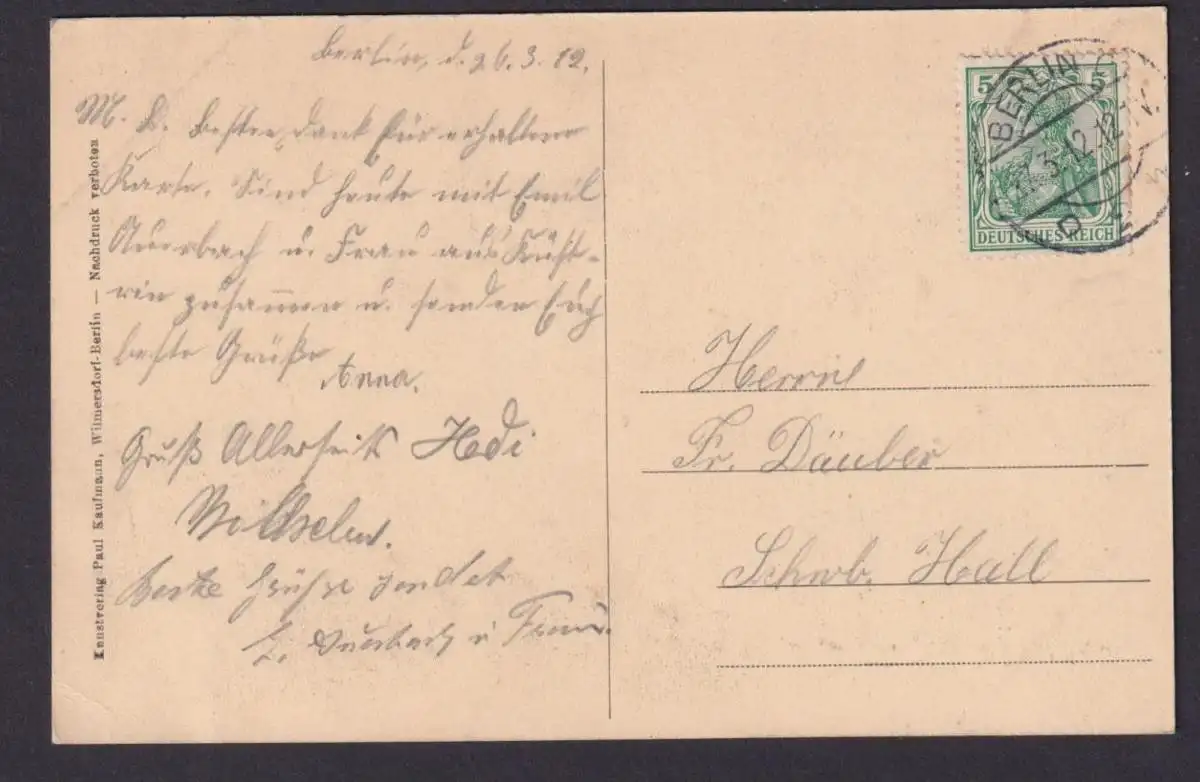 Berlin, d. 26.3.12.
M. L. Besten dank für erhaltene
Karte. Sind heute mit Emil
Auerbach u. Frau aus Küst-
rin zusammen u. senden Euch
beste Grüße
Anna.
Gruß Allerseits Hedi
Wilhelm.
Beste Grüße sendet
E. Auerbach u Frau.
Kunstverlag Paul Kaufmann, Wilmersdorf-Berlin — Nachdruck verboten
5 5
DEUTSCHES REICH
BERLIN
3.12.12
Herrn
Fr. Däuber
Schwb. Hall